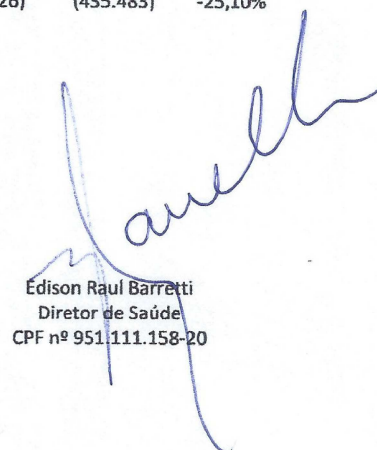 (435.483) -25,10%
Edison Raul Barretti
Diretor de Saúde
CPF nº 951.111.158-20